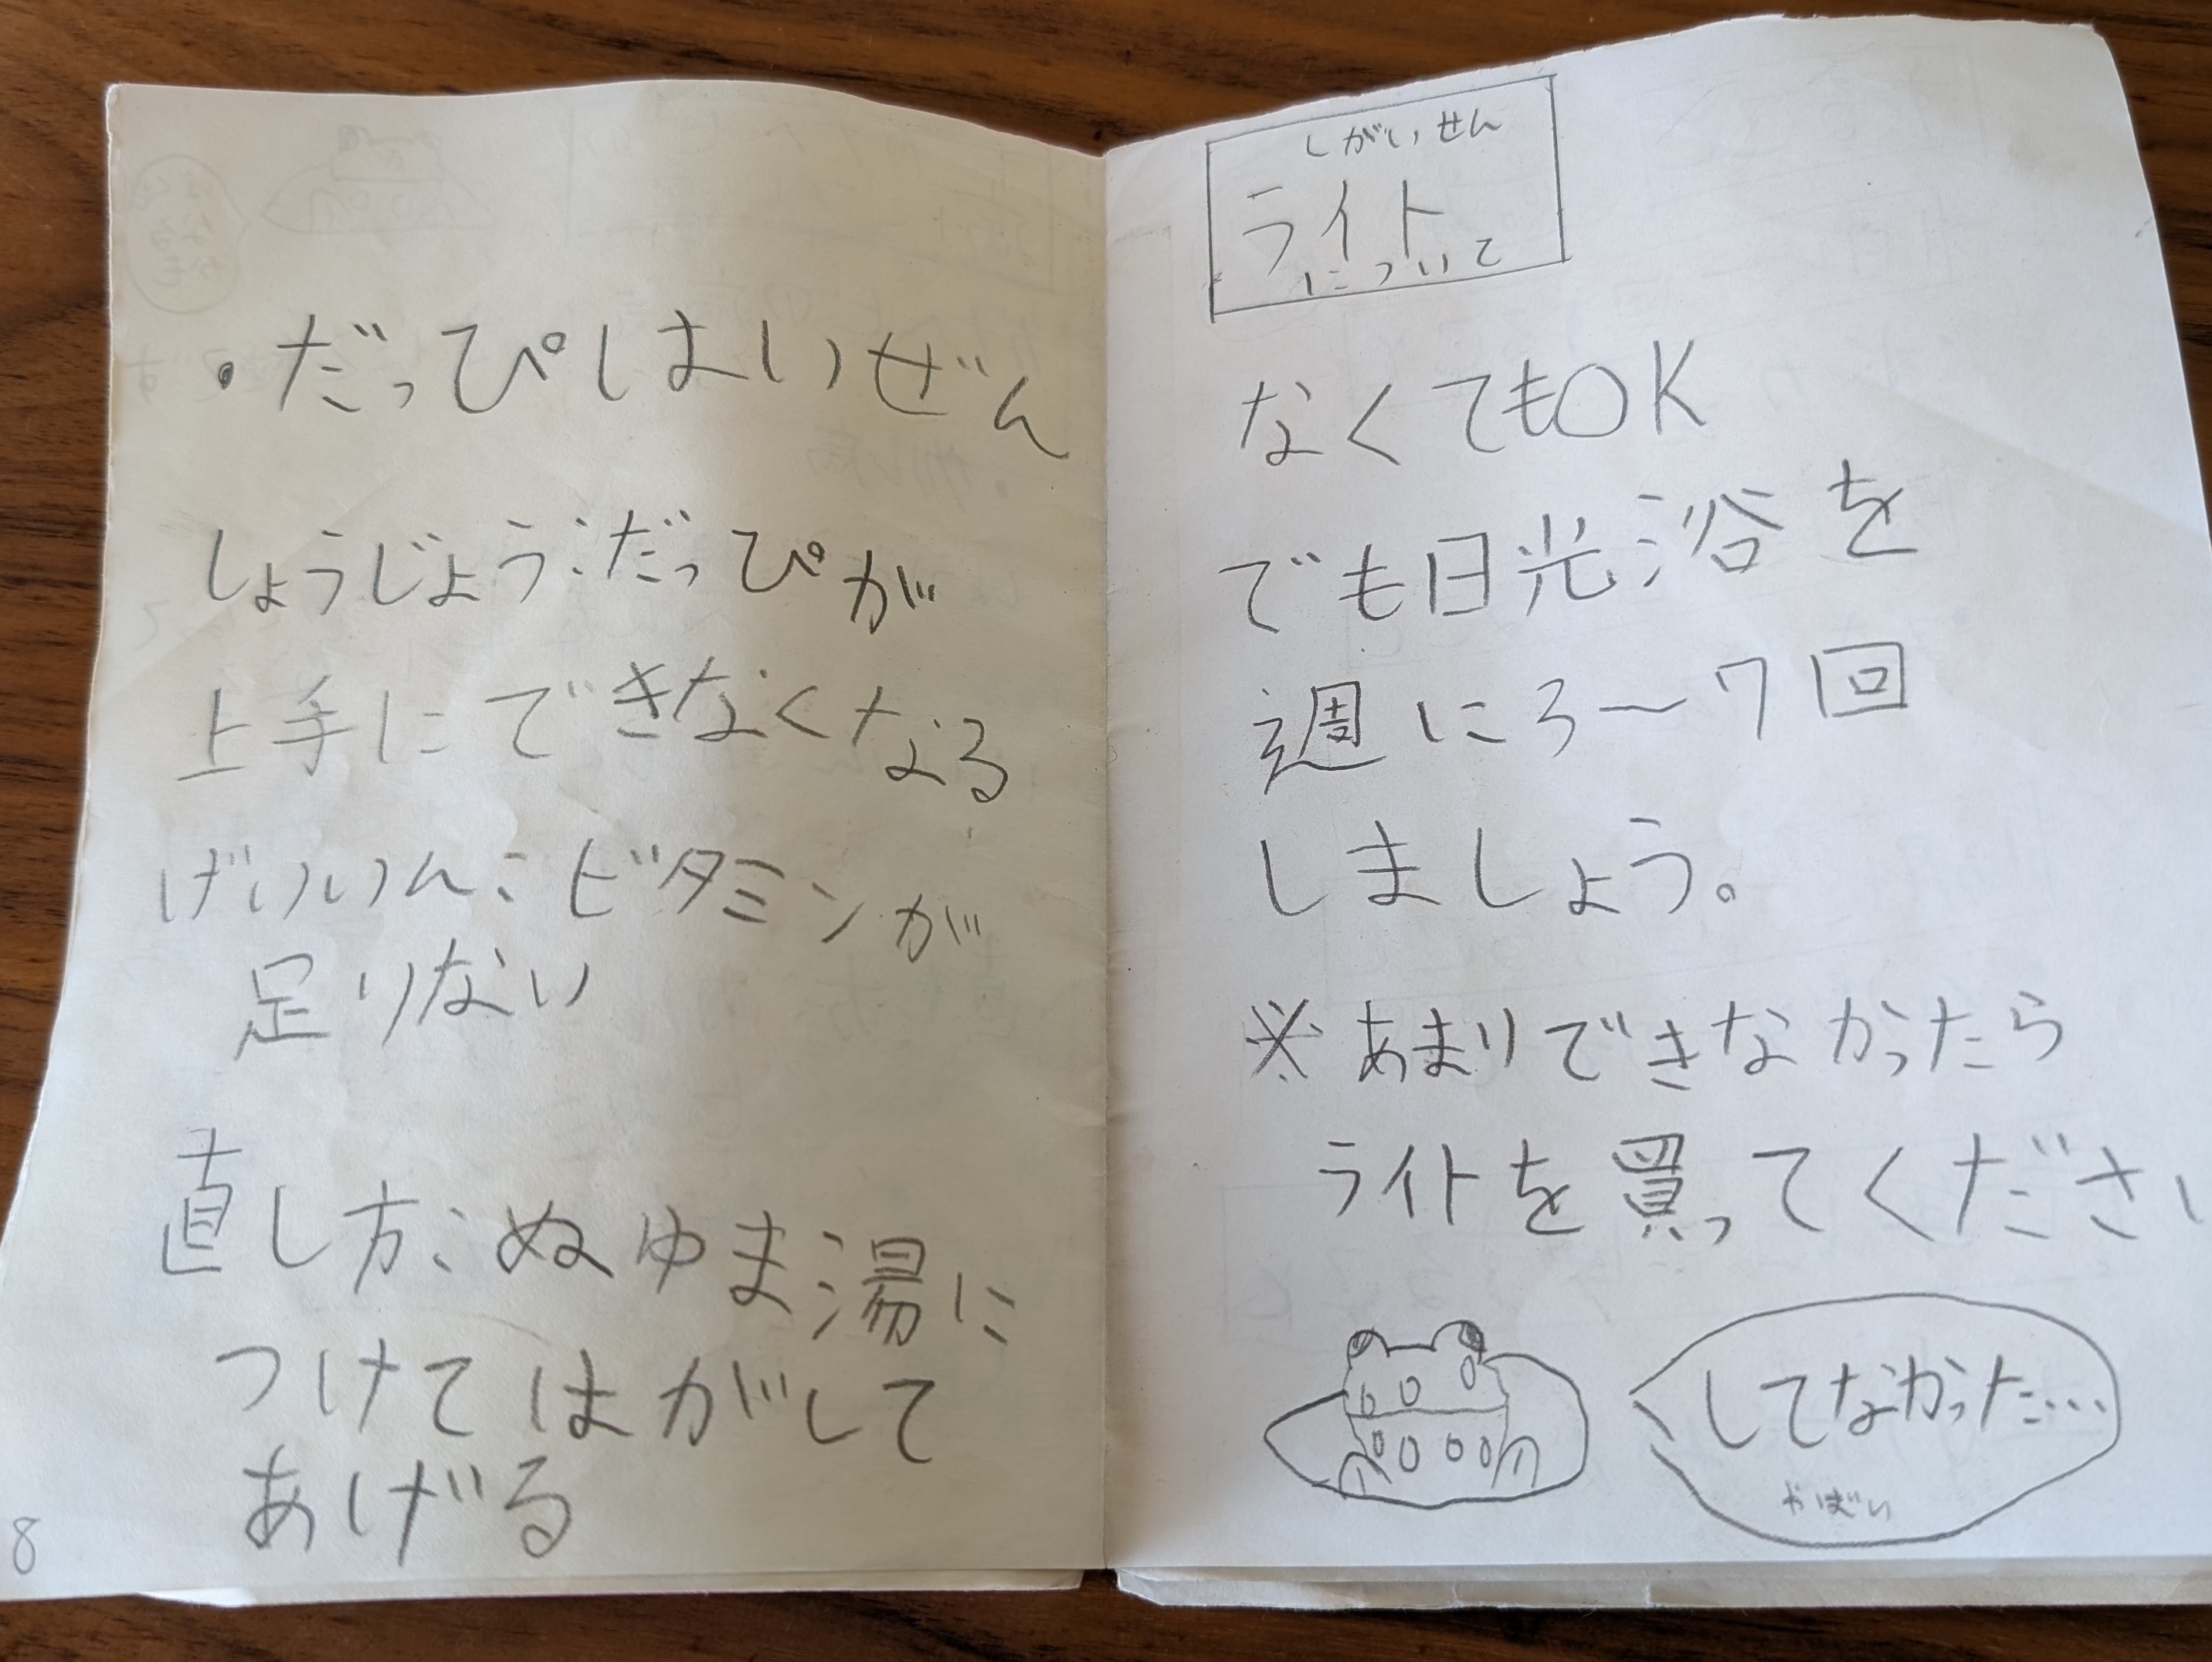 ・だっぴしはいぜん
しょうじょう:だっぴが
上手にできなくなる
げいいん:ビタミンが
足りない
直し方:ぬゆま湯に
つけてはがして
あげる
8
しがいせん
ライト
について
なくてもOK
でも日光浴を
週に3〜7回
しましょう。
※あまりできなかったら
ライトを買ってくださ
してなかった…
やばい